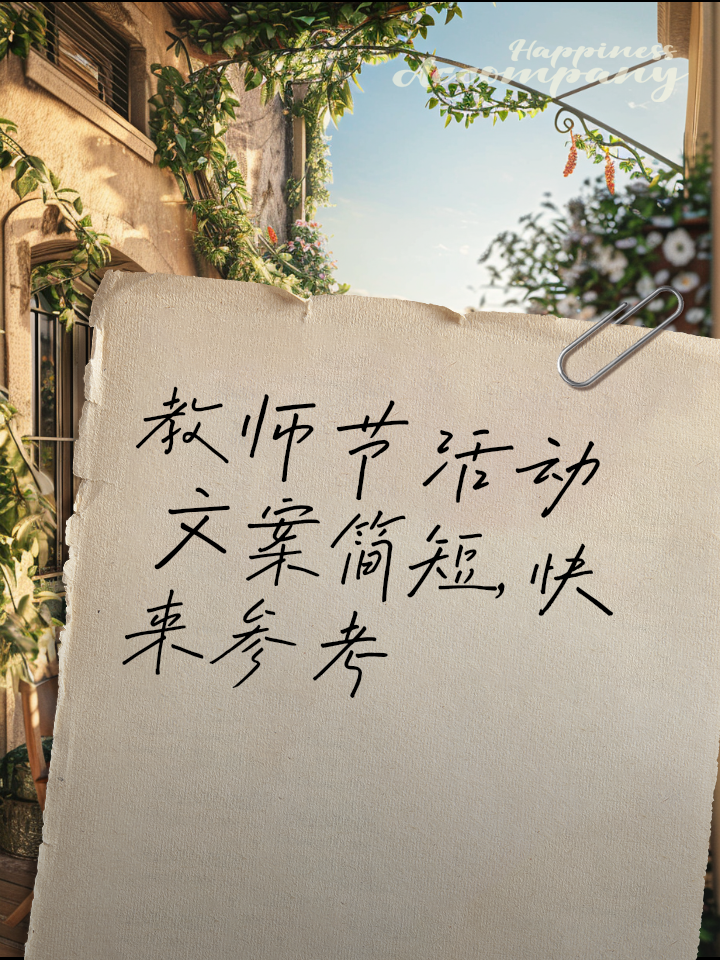 Happiness
Accompany
教师节活动
文案简短,快
来参考